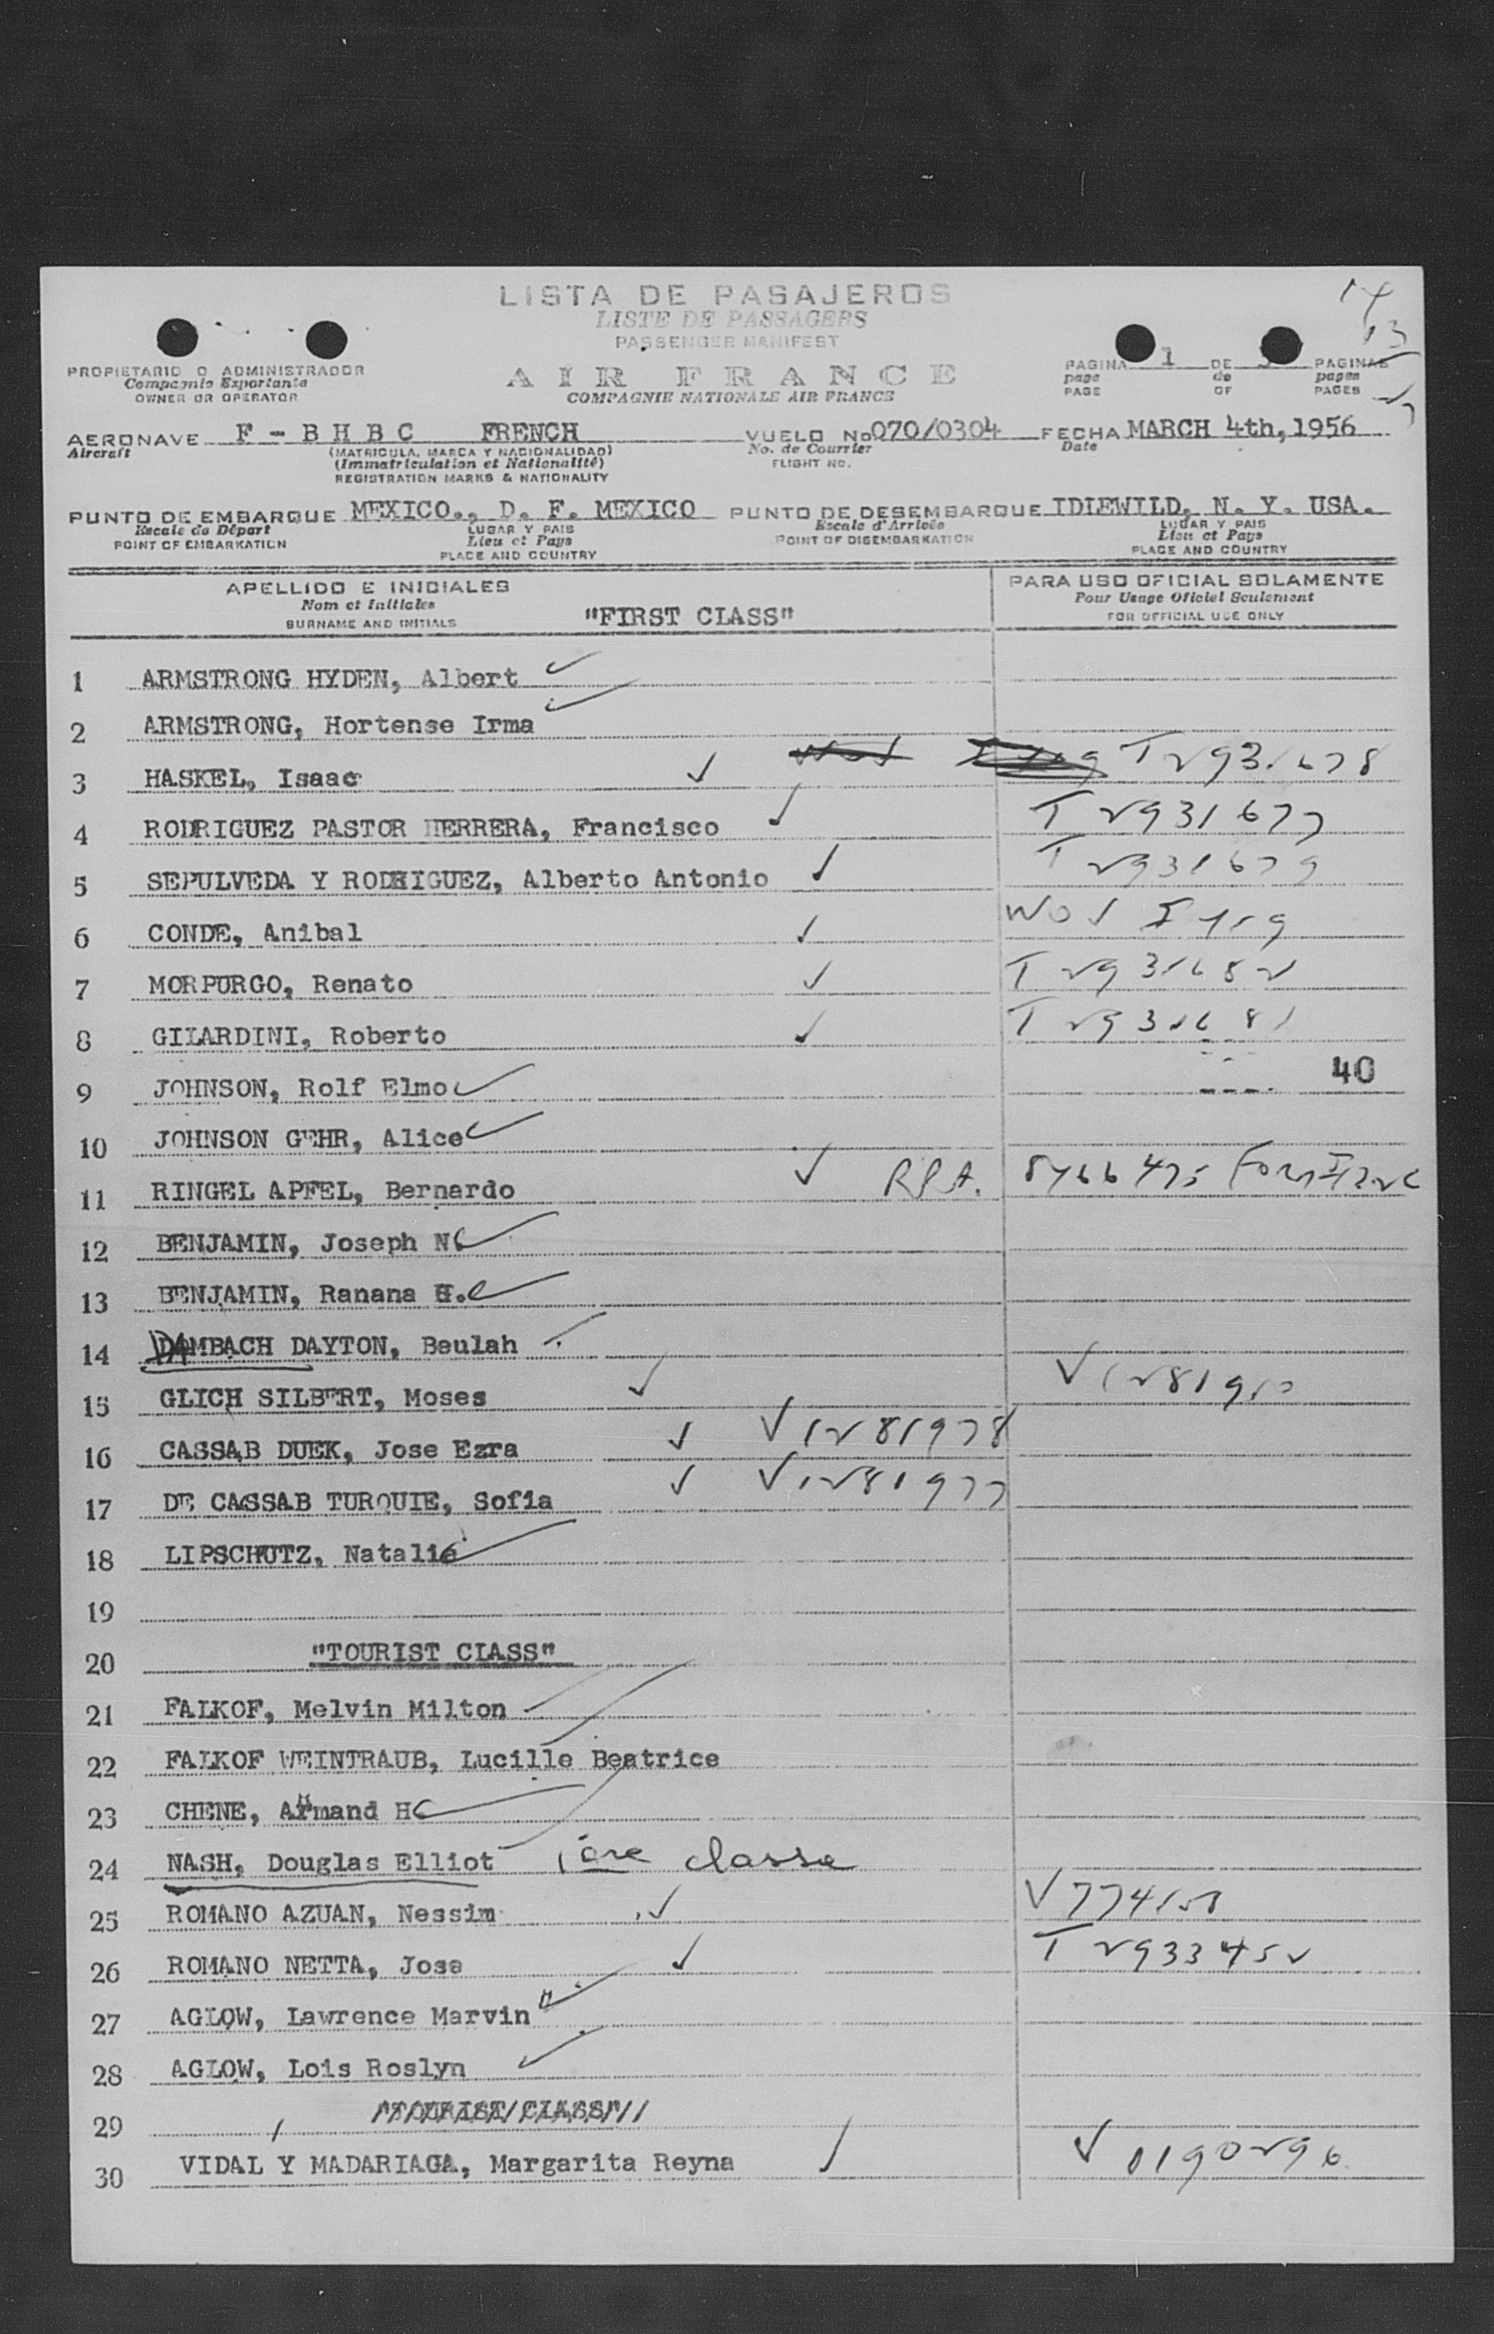 LISTA DE PASAJEROS
LISTE DE PASSAGERS
PASSENGER MANIFEST
14
13
PROPIETARIO O ADMINISTRADOR
Compagnie Exportante
OWNER OR OPERATOR
AIR FRANCE
COMPAGNIE NATIONALE AIR FRANCE
PAGINA 1 DE 3 PAGINAS
page de pages
PAGE OF PAGES
AERONAVE F - B H B C FRENCH VUELO No 070/0304 FECHA MARCH 4th, 1956
Aircraft (MATRICULA, MARCA Y NACIONALIDAD) No. de Courrier Date
(Immatriculation et Nationalité) FLIGHT NO.
REGISTRATION MARKS & NATIONALITY
PUNTO DE EMBARQUE MEXICO., D. F. MEXICO PUNTO DE DESEMBARQUE IDLEWILD, N. Y. USA.
Escale de Départ LUGAR Y PAIS Escale d'Arrivée LUGAR Y PAIS
POINT OF EMBARKATION Lieu et Pays POINT OF DISEMBARKATION Lieu et Pays
PLACE AND COUNTRY PLACE AND COUNTRY
APELLIDO E INICIALES PARA USO OFICIAL SOLAMENTE
Nom et Initiales "FIRST CLASS" Pour Usage Oficiel Seulement
SURNAME AND INITIALS FOR OFFICIAL USE ONLY
1 ARMSTRONG HYDEN, Albert
2 ARMSTRONG, Hortense Irma
3 HASKEL, Isaac T2931678
4 RODRIGUEZ PASTOR HERRERA, Francisco T2931677
5 SEPULVEDA Y RODRIGUEZ, Alberto Antonio T2931679
6 CONDE, Anibal
7 MORPURGO, Renato T2931682
8 GILARDINI, Roberto T2931681
9 JOHNSON, Rolf Elmo 40
10 JOHNSON GEHR, Alice
11 RINGEL APFEL, Bernardo
12 BENJAMIN, Joseph N
13 BENJAMIN, Ranana H.
14 DAMBACH DAYTON, Beulah
15 GLICH SILBERT, Moses
16 CASSAB DUEK, Jose Ezra V1281978
17 DE CASSAB TURQUIE, Sofia V1281977
18 LIPSCHUTZ, Natalie
19
20 "TOURIST CLASS"
21 FALKOF, Melvin Milton
22 FALKOF WEINTRAUB, Lucille Beatrice
23 CHENE, Armand H
24 NASH, Douglas Elliot 1ere classe
25 ROMANO AZUAN, Nessim
26 ROMANO NETTA, Jose T2933452
27 AGLOW, Lawrence Marvin
28 AGLOW, Lois Roslyn
29 "TOURIST CLASS"
30 VIDAL Y MADARIAGA, Margarita Reyna V0190296